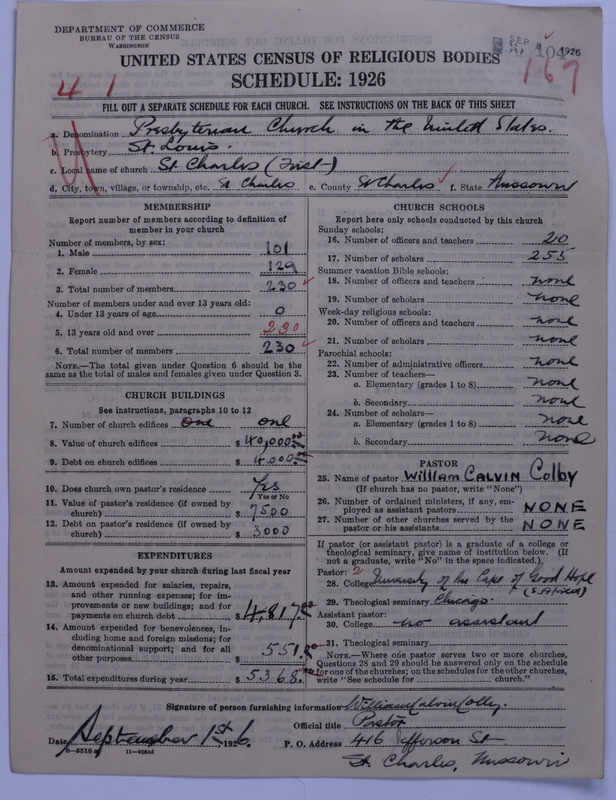 DEPARTMENT OF COMMERCE
BUREAU OF THE CENSUS
WASHINGTON
SEP 1926
104
167
UNITED STATES CENSUS OF RELIGIOUS BODIES
SCHEDULE: 1926
41
FILL OUT A SEPARATE SCHEDULE FOR EACH CHURCH. SEE INSTRUCTIONS ON THE BACK OF THIS SHEET
a. Denomination Presbyterian Church in the United States.
b. Presbytery St. Louis.
c. Local name of church St Charles (First)
d. City, town, village, or township, etc. St Charles e. County St Charles f. State Missouri
MEMBERSHIP
Report number of members according to definition of
member in your church
Number of members, by sex:
1. Male 101
2. Female 129
3. Total number of members 230
Number of members under and over 13 years old:
4. Under 13 years of age 0
5. 13 years old and over 230
6. Total number of members 230
NOTE.—The total given under Question 6 should be
same as the total of males and females given under Question 3.
CHURCH BUILDINGS
See instructions, paragraphs 10 to 12
7. Number of church edifices One one
8. Value of church edifices $ 40,000.00
9. Debt on church edifices $ 4000.00
10. Does church own pastor's residence Yes
Yes or No
11. Value of pastor's residence (if owned by
church) $ 7500
12. Debt on pastor's residence (if owned by
church) $ 3000
EXPENDITURES
Amount expended by your church during last fiscal year
13. Amount expended for salaries, repairs,
and other running expenses; for im-
provements or new buildings; and for
payments on church debt $ 4,817.00
14. Amount expended for benevolences, in-
cluding home and foreign missions; for
denominational support; and for all
other purposes $ 551.00
15. Total expenditures during year $ 5368.00
CHURCH SCHOOLS
Report here only schools conducted by this church
Sunday schools:
16. Number of officers and teachers 20
17. Number of scholars 255
Summer vacation Bible schools:
18. Number of officers and teachers none
19. Number of scholars none
Week-day religious schools:
20. Number of officers and teachers none
21. Number of scholars none
Parochial schools:
22. Number of administrative officers none
23. Number of teachers—
a. Elementary (grades 1 to 8) none
b. Secondary none
24. Number of scholars—
a. Elementary (grades 1 to 8) none
b. Secondary none
PASTOR
25. Name of pastor William CALVIN Colby
(If church has no pastor, write "None")
26. Number of ordained ministers, if any, em-
ployed as assistant pastors NONE
27. Number of other churches served by the
pastor or his assistants NONE
If pastor (or assistant pastor) is a graduate of a college or
theological seminary, give name of institution below. (If
not a graduate, write "No" in the space indicated.)
Pastor: 2
28. College University of the Cape of Good Hope
(S. Africa)
29. Theological seminary Chicago.
Assistant pastor:
30. College no assistant
31. Theological seminary
NOTE.—Where one pastor serves two or more churches,
Questions 28 and 29 should be answered only on the schedule
for one of the churches; on the schedules for the other churches,
write "See schedule for church."
Signature of person furnishing information William Calvin Colby.
Official title Pastor
Date September 1st, 1926.
P. O. Address 416 Jefferson St
St Charles, Missouri
6-5518 a 11-90844